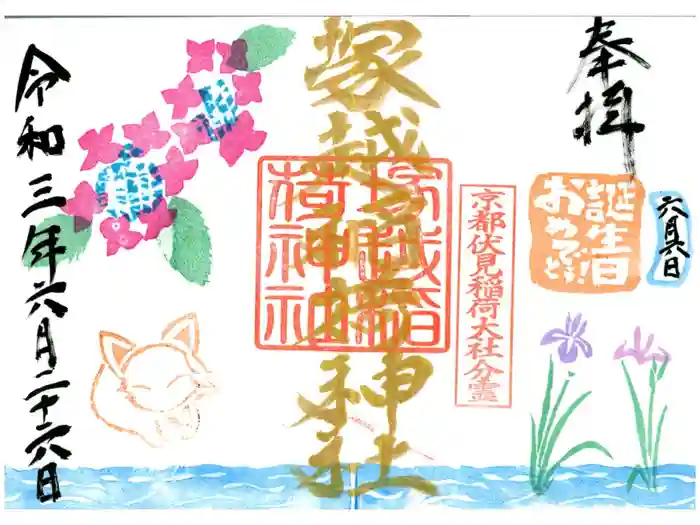 奉拝
誕生日
おめでとう!
六月六日
京都伏見稲荷大社分霊
塚越稲荷神社
塚越稲
荷神社
令和三年六月二十六日